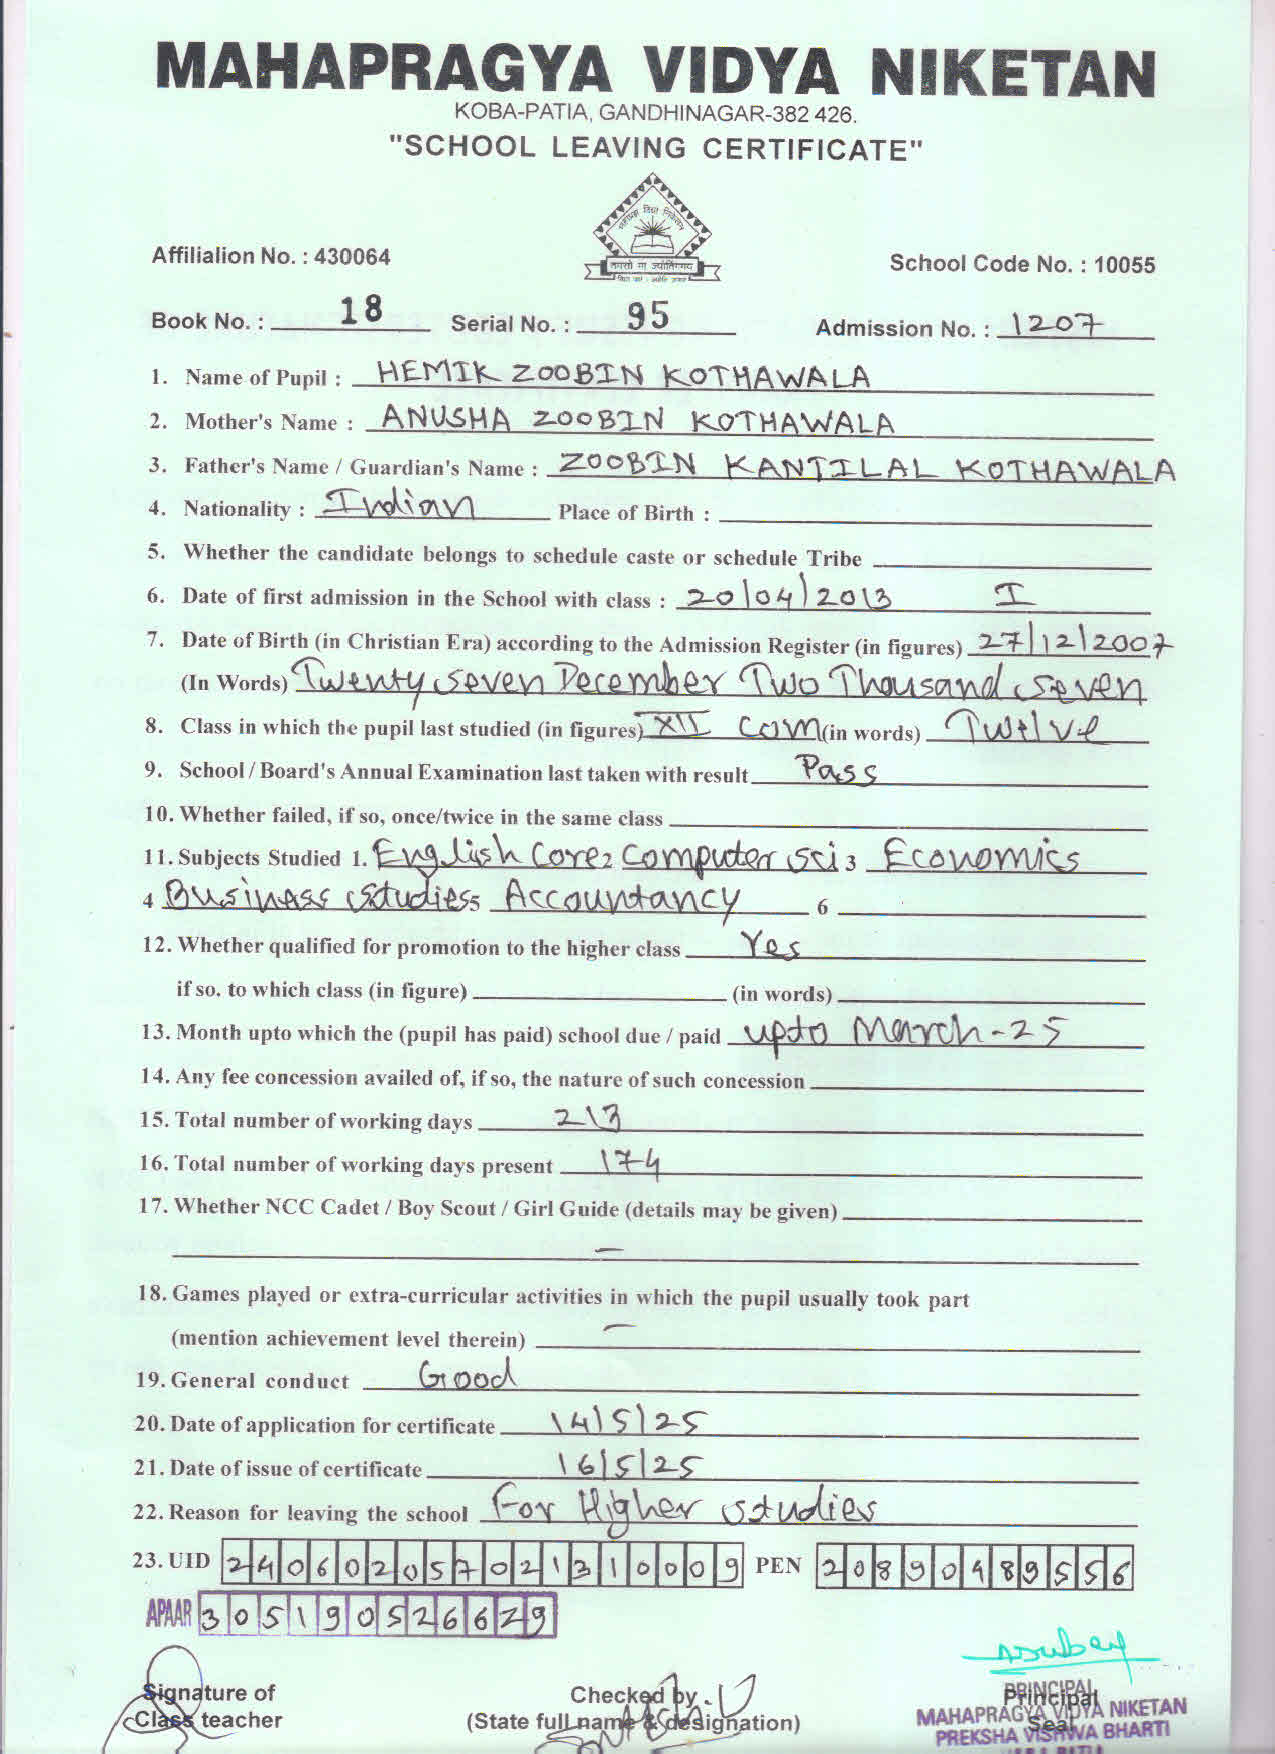 MAHAPRAGYA VIDYA NIKETAN
KOBA-PATIA, GANDHINAGAR-382 426.
"SCHOOL LEAVING CERTIFICATE"
महाप्रज्ञ विद्या निकेतन
तमसो मा ज्योतिर्गमय
Affilialion No. : 430064
School Code No. : 10055
Book No. : 18 Serial No. : 95 Admission No. : 1207
1. Name of Pupil : HEMIK ZOOBIN KOTHAWALA
2. Mother's Name : ANUSHA ZOOBIN KOTHAWALA
3. Father's Name / Guardian's Name : ZOOBIN KANTILAL KOTHAWALA
4. Nationality : Indian Place of Birth :
5. Whether the candidate belongs to schedule caste or schedule Tribe
6. Date of first admission in the School with class : 20/04/2013 I
7. Date of Birth (in Christian Era) according to the Admission Register (in figures) 27/12/2007
(In Words) Twenty Seven December Two Thousand Seven
8. Class in which the pupil last studied (in figures) XII com (in words) Twelve
9. School / Board's Annual Examination last taken with result Pass
10. Whether failed, if so, once/twice in the same class
11. Subjects Studied 1. English Core 2 Computer Sci 3 Economics
4 Business Studies 5 Accountancy 6
12. Whether qualified for promotion to the higher class Yes
if so. to which class (in figure) (in words)
13. Month upto which the (pupil has paid) school due / paid upto March-25
14. Any fee concession availed of, if so, the nature of such concession
15. Total number of working days 213
16. Total number of working days present 174
17. Whether NCC Cadet / Boy Scout / Girl Guide (details may be given)
—
18. Games played or extra-curricular activities in which the pupil usually took part
(mention achievement level therein) —
19. General conduct Good
20. Date of application for certificate 14/5/25
21. Date of issue of certificate 16/5/25
22. Reason for leaving the school For Higher Studies
23. UID 240602057021310009 PEN 20890489556
APAAR 305190526629
Signature of
Class teacher
Checked by
(State full name & designation)
Principal
Seal
PRINCIPAL
MAHAPRAGYA VIDYA NIKETAN
PREKSHA VISHWA BHARTI